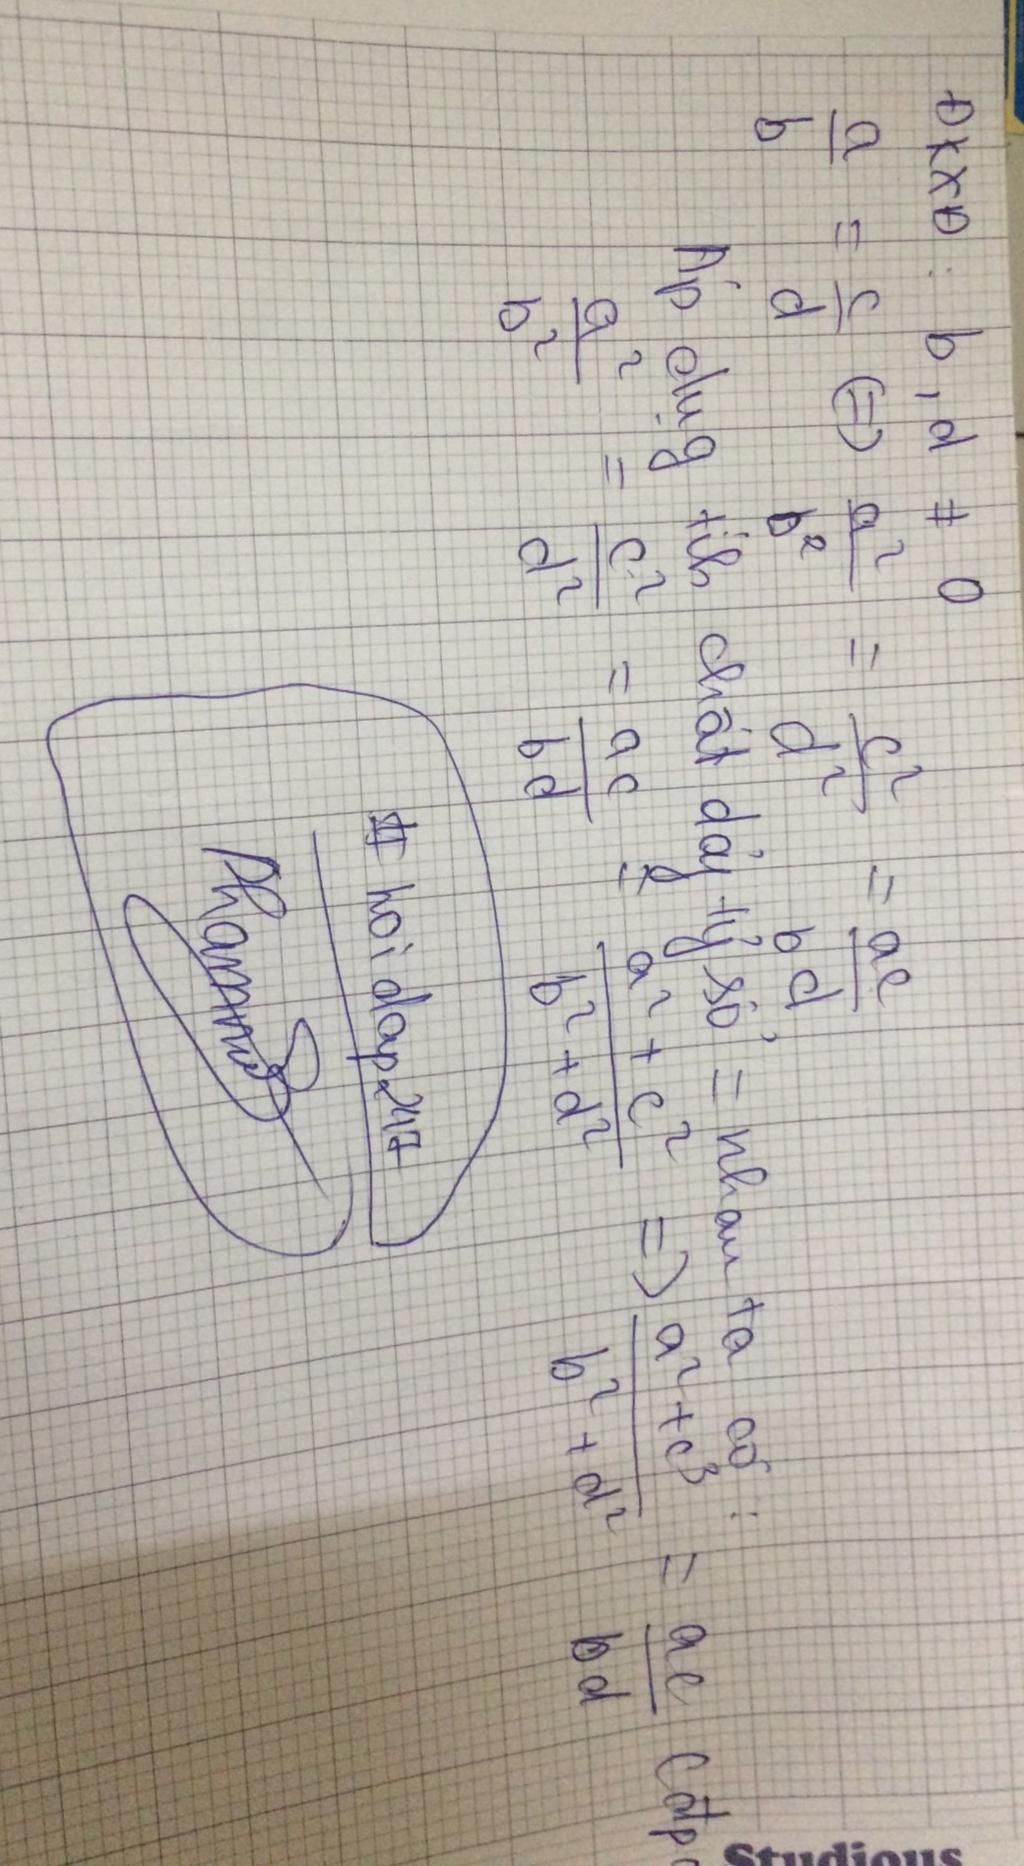 ĐKXĐ : b, d ≠ 0
a/b = c/d (=) a²/b² = c²/d² = ac/bd
Áp dụg tíh chất dãy tỷ số = nhau ta có :
a²/b² = c²/d² = ac/bd = a² + c²/b² + d² => a² + c³/b² + d² = ac/bd
# hoidap247
Studious